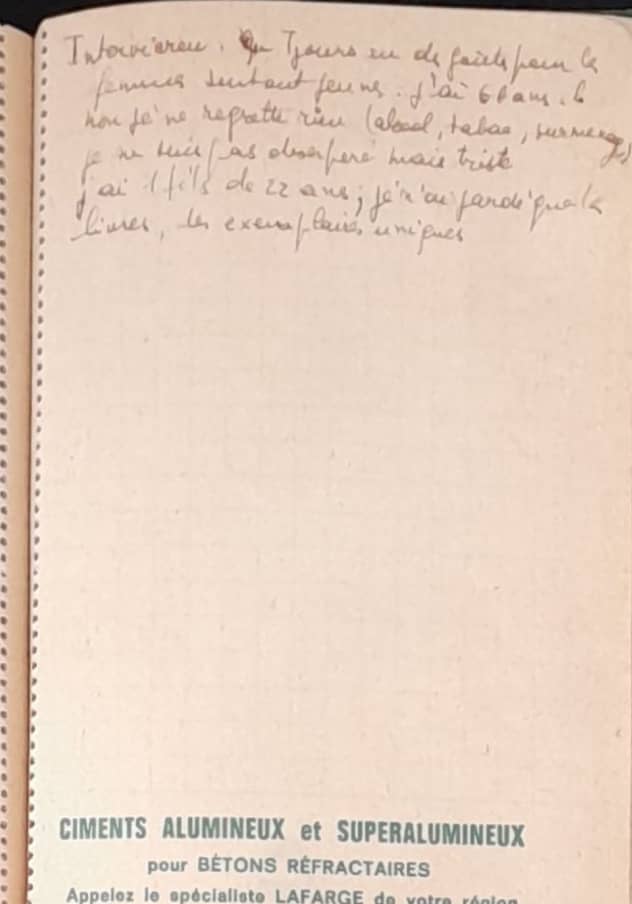 Intervieweu. J'ai Tjours eu de goûts pour les
femmes surtout jeunes. J'ai 60 ans. b
non je ne regrette rien (alcool, tabac, surmenage)
je ne suis pas désespéré mais triste
j'ai 1 fils de 22 ans; je n'ai gardé que les
livres, les exemplaires uniques
CIMENTS ALUMINEUX et SUPERALUMINEUX
pour BÉTONS RÉFRACTAIRES
Appelez le spécialiste LAFARGE de votre région